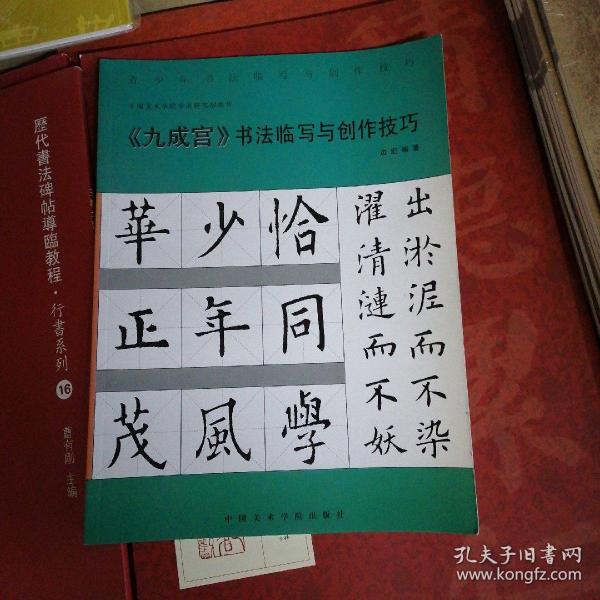 青少年书法临写与创作技巧
《九成宫》书法临写与创作技巧
编著
恰同學
少年風
華正茂
出淤泥而不染
濯清漣而不妖
中国美术学院出版社
歷代書法碑帖導臨教程·行書系列
16
主编
孔夫子旧书网
www.kongfz.com